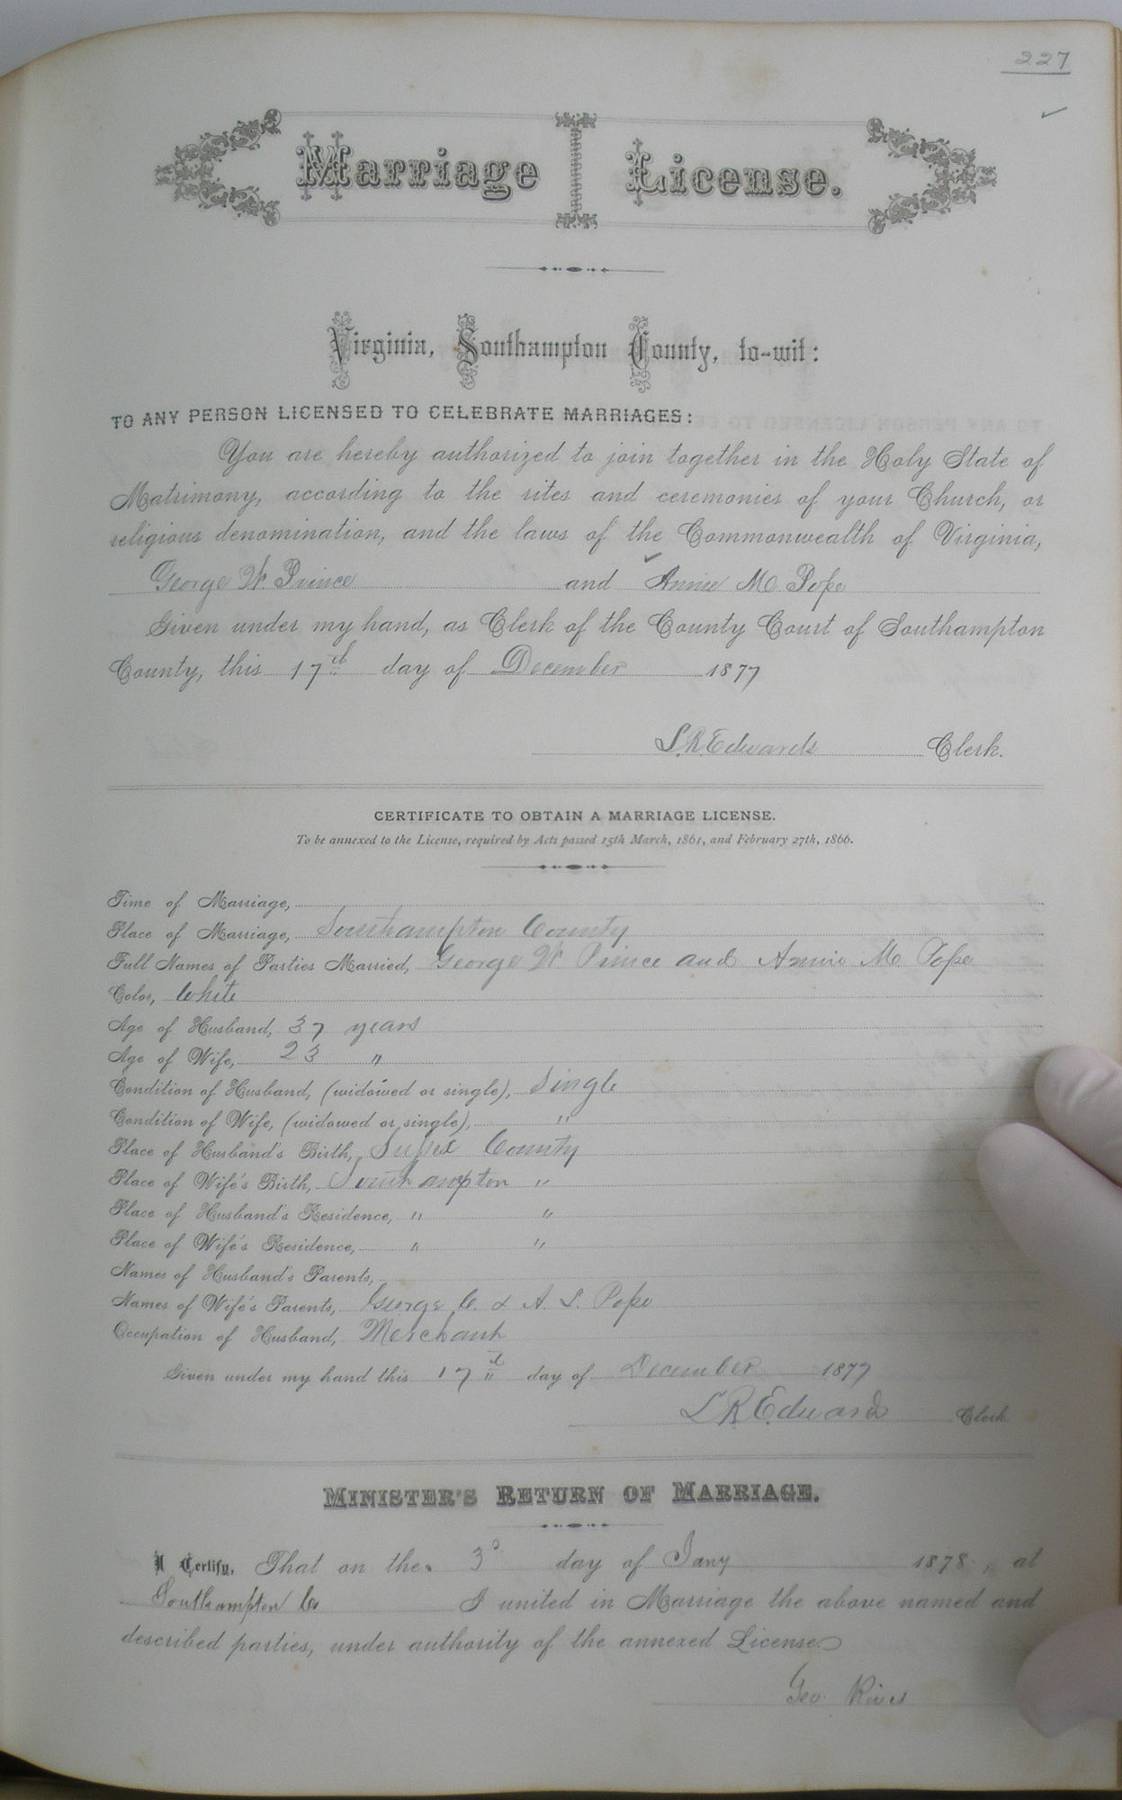 227
Marriage License.
Virginia, Southampton County, to-wit:
TO ANY PERSON LICENSED TO CELEBRATE MARRIAGES:
You are hereby authorized to join together in the Holy State of
Matrimony, according to the rites and ceremonies of your Church, or
religious denomination, and the laws of the Commonwealth of Virginia,
George W. Prince and Annie M. Pope
Given under my hand, as Clerk of the County Court of Southampton
County, this 17th day of December 1877
L.R. Edwards Clerk.
CERTIFICATE TO OBTAIN A MARRIAGE LICENSE.
To be annexed to the License, required by Acts passed 15th March, 1861, and February 27th, 1866.
Time of Marriage,
Place of Marriage, Southampton County
Full Names of Parties Married, George W Prince and Annie M. Pope
Color, White
Age of Husband, 37 years
Age of Wife, 23 "
Condition of Husband, (widowed or single), Single
Condition of Wife, (widowed or single), "
Place of Husband's Birth, Sussex County
Place of Wife's Birth, Southampton "
Place of Husband's Residence, " "
Place of Wife's Residence, " "
Names of Husband's Parents,
Names of Wife's Parents, George C. & A. S. Pope
Occupation of Husband, Merchant
Given under my hand this 17th day of December 1877
L R. Edwards Clerk
MINISTER'S RETURN OF MARRIAGE.
I Certify, That on the 3d day of Jany 1878, at
Southampton Co I united in Marriage the above named and
described parties, under authority of the annexed License.
Geo Rives